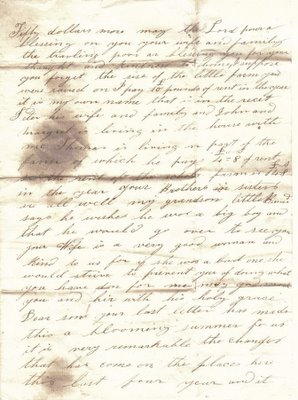 Fifty dollars more may the Lord pour a
blessing on you your wife and family
the traveling poor as
and suppose
you forget the size of the little farm you
were raised on I pay 10 pounds of rent in the year
it is my own name that is in the
his wife and family and John and
living in the house with
me Thomas is living in part of the
farm of which he pays 4-8 of rent
the rent of the farm is
in the year your Brothers sisters
is all well my grandson little
says he wishes he was a big boy and
that he would go over to see you
your Wife is a very good woman and
kind to us for if she was a bad one she
would strive to prevent you of doing what
you have don for me may god
you and hir with his holy grace
Dear son your last letter has made
this a blooming summer for us
it is very remarkable the changes
that has come on the place here
this last four year and it